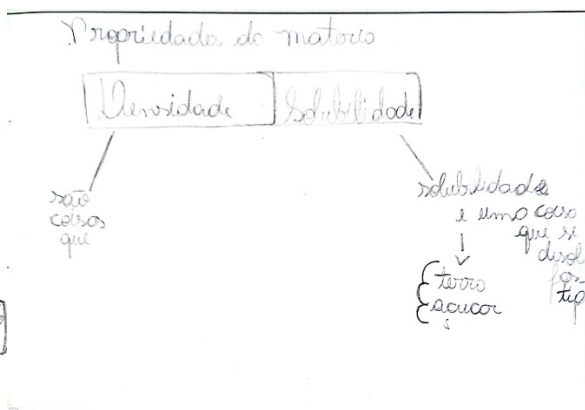 Propriedades da materia
Densidade
Solubilidade
são
coisas
que
solubilidade
é uma coisa
que se
disol
tip
terra
açucar